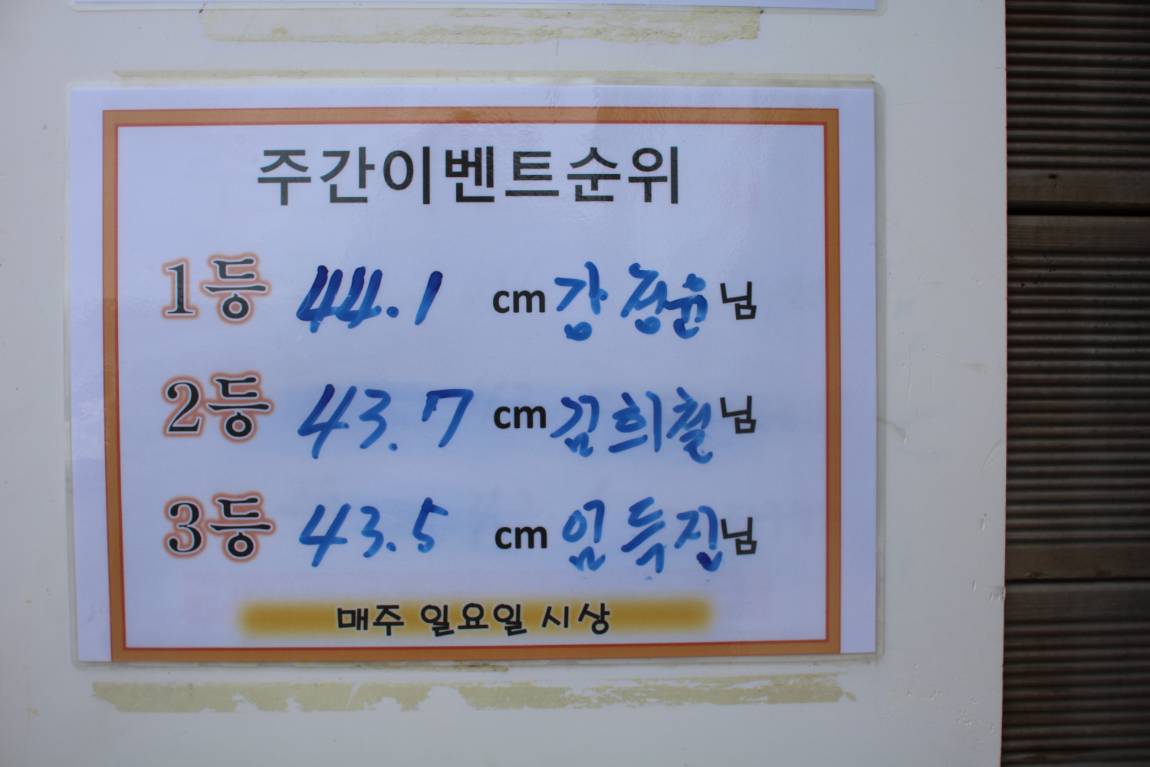 주간이벤트순위
1등 44.1 cm 강정윤님
2등 43.7 cm 김희철님
3등 43.5 cm 임득진님
매주 일요일 시상